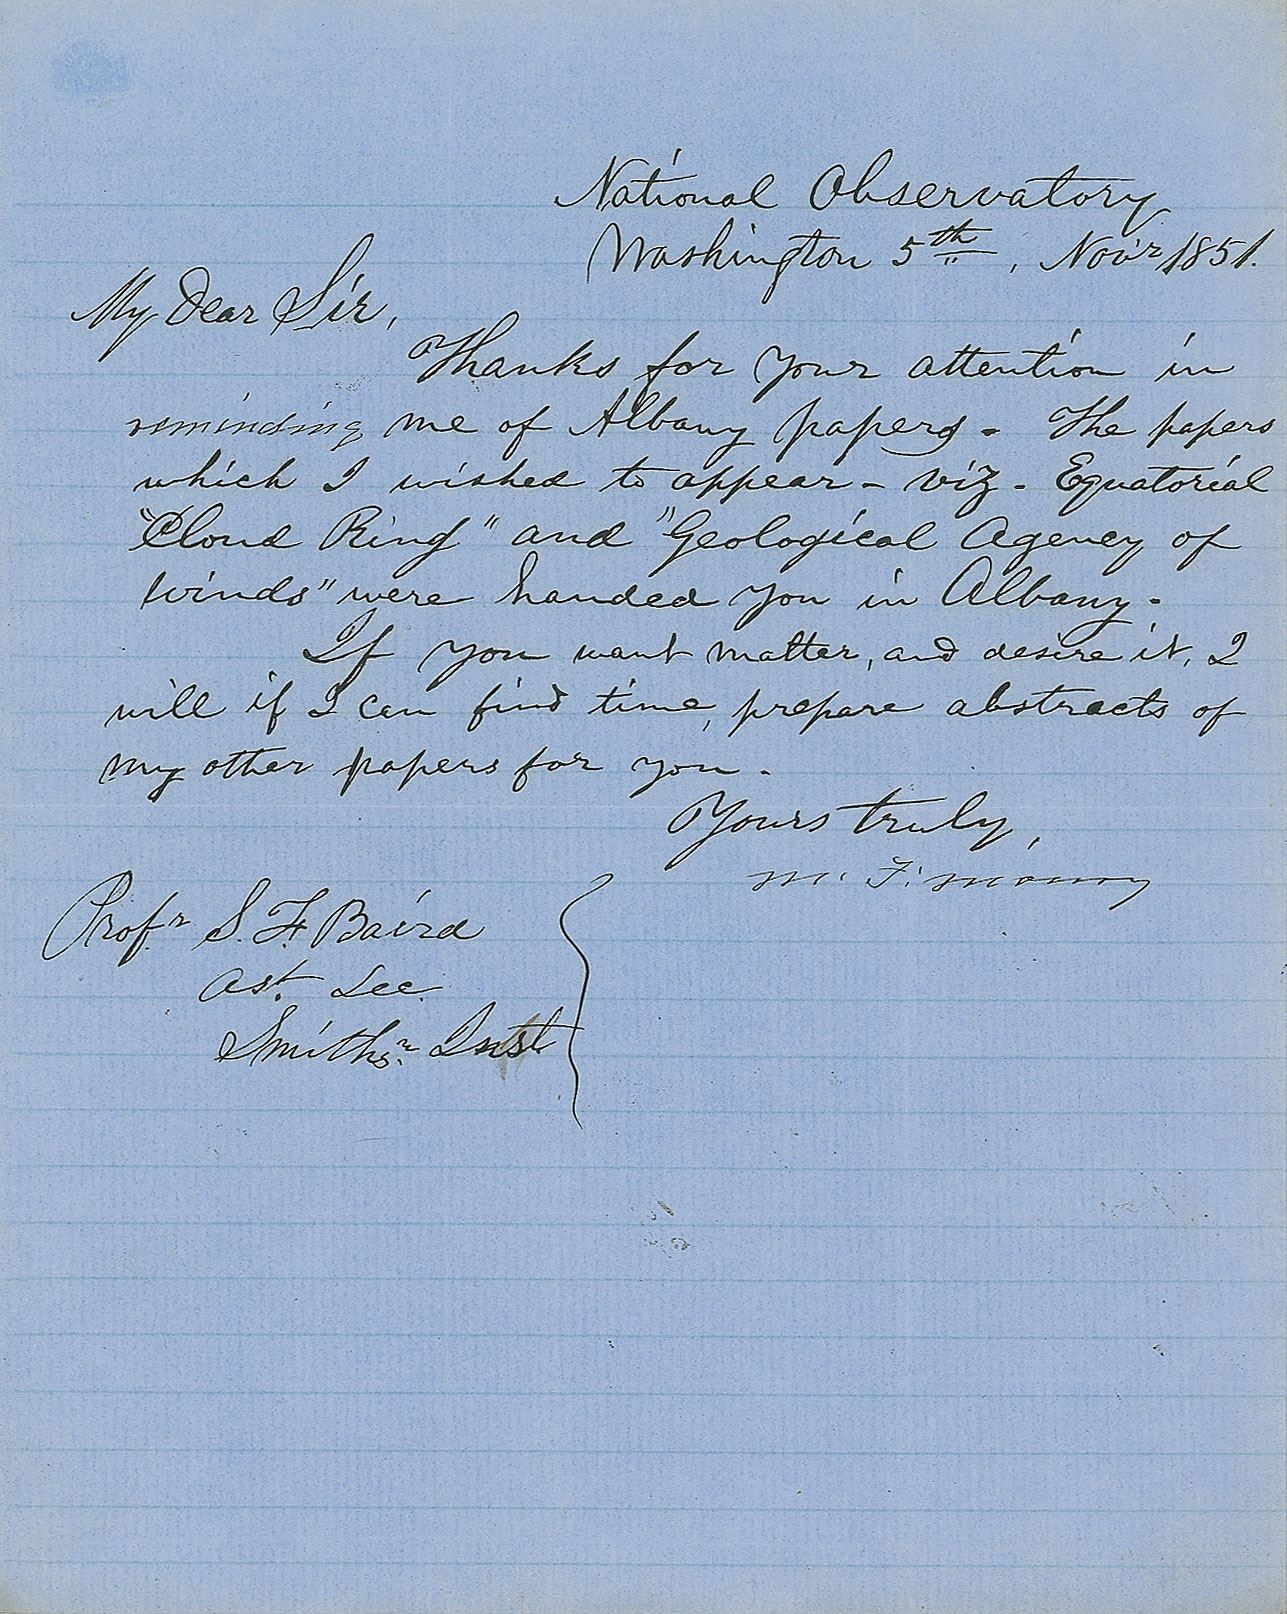 National Observatory
Washington 5th, Novr 1851.
My Dear Sir,
Thanks for your attention in
reminding me of Albany papers - The papers
which I wished to appear - viz - Equatorial
"Cloud Ring" and "Geological Agency of
Winds" were handed you in Albany.
If you want matter, and desire it, I
will if I can find time, prepare abstracts of
my other papers for you.
Yours truly,
M. F. Maury
Profr S. F. Baird
Ast. Sec.
Smithsn Inst